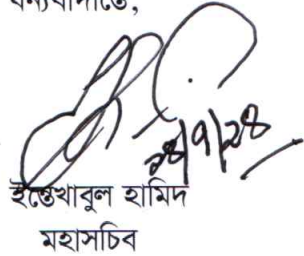 ধন্যবাদান্তে,
২৪/৭/২৪
ইন্তেখাবুল হামিদ
মহাসচিব